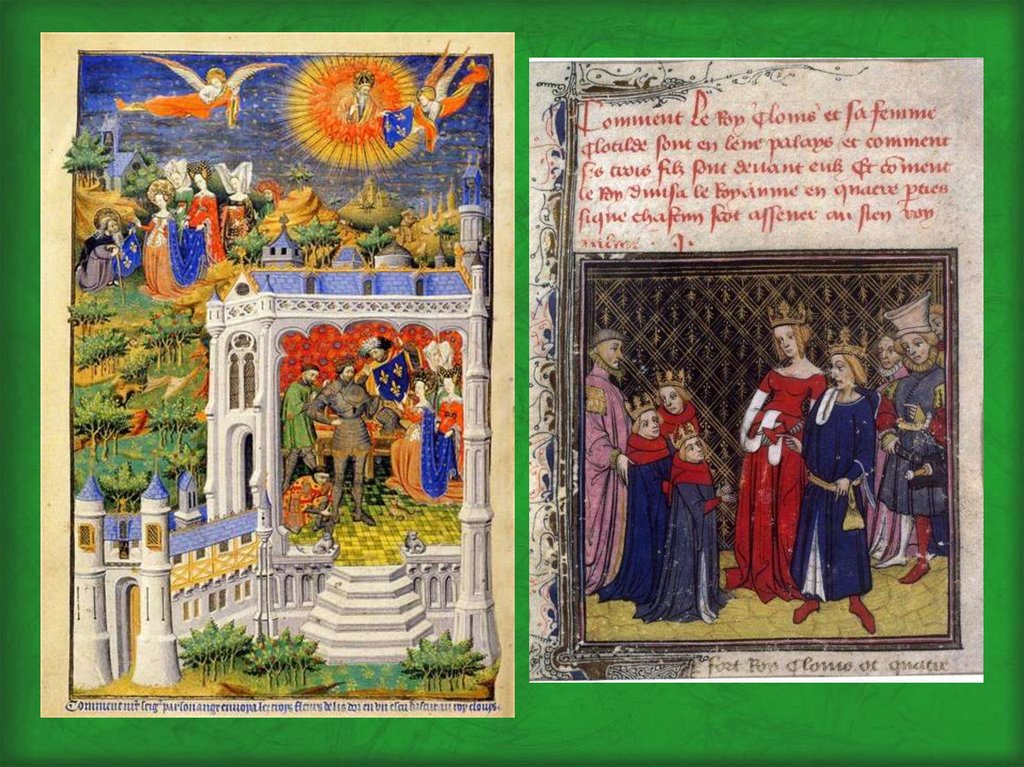 Comment nr̃e seigr̃ par son ange envoya les troys fleurs de lis dor en un escu dasur au roy clouys.
Comment le Roy Clouis et sa femme
Clotilde sont en leur palays et comment
ses trois filz sont devant eulx Et cõment
le Roy divisa le Royaume en quatre pties
sique chascun
fort Roy Clouis ot quatre